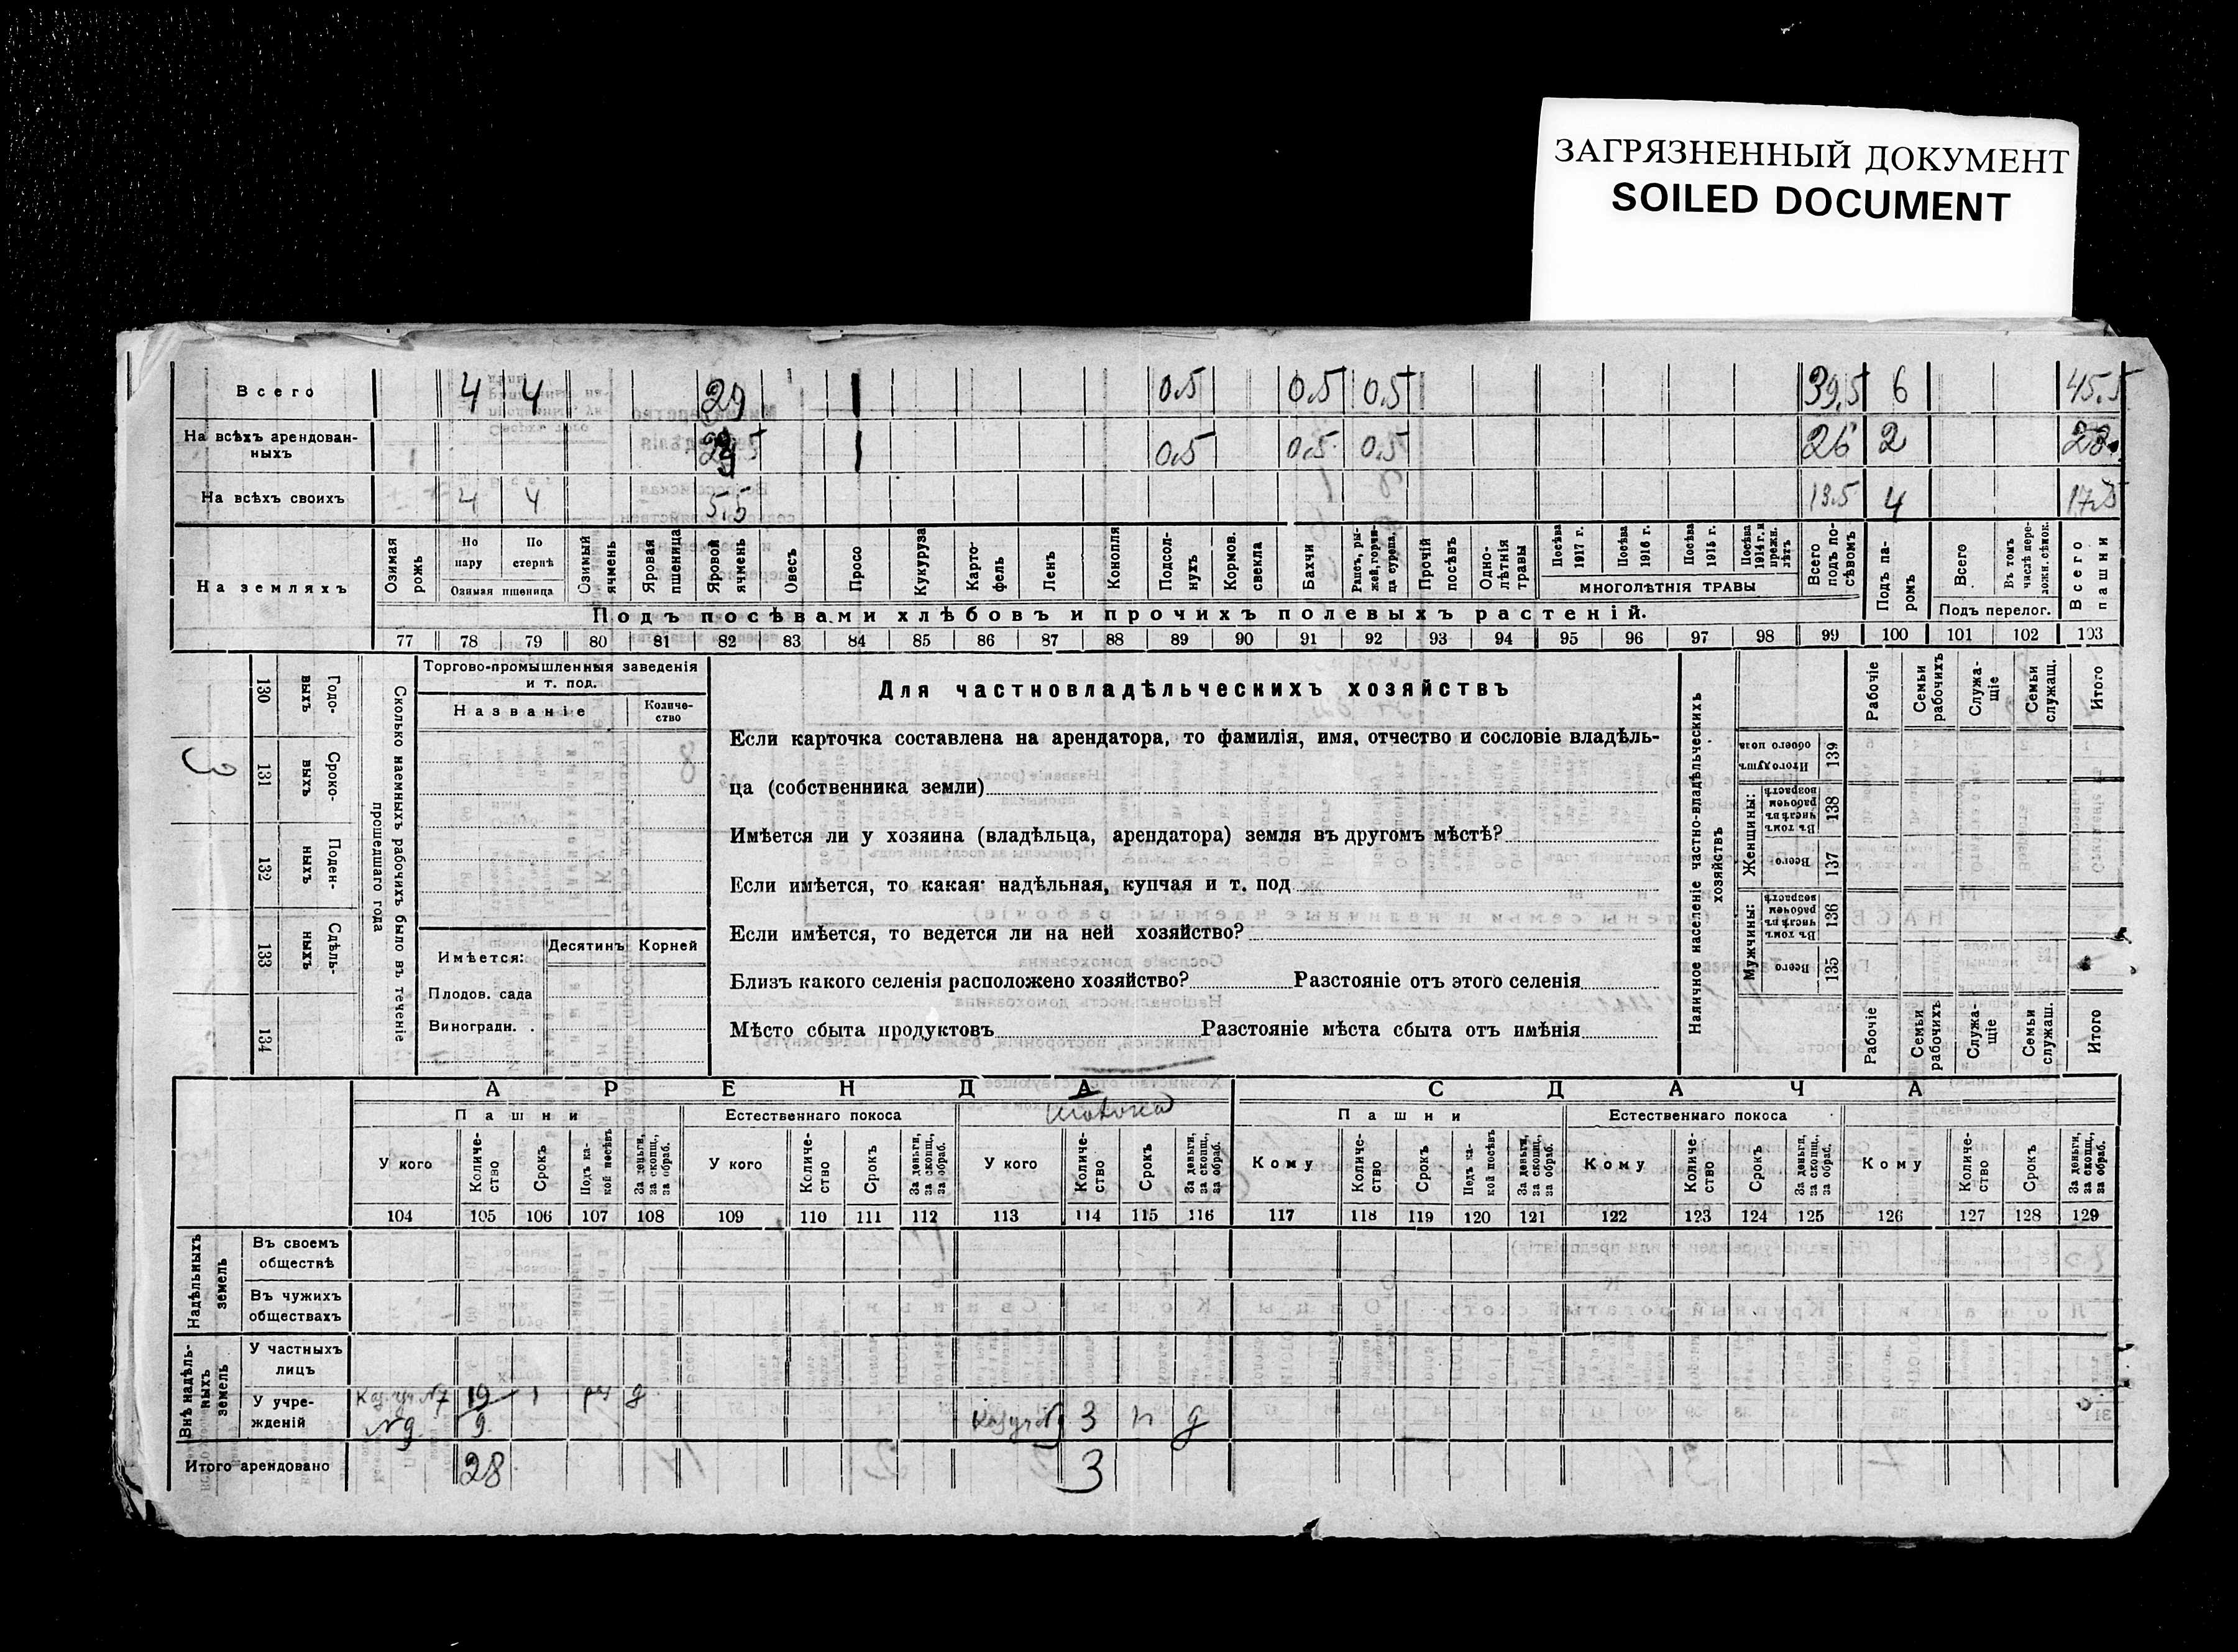 ЗАГРЯЗНЕННЫЙ ДОКУМЕНТ
SOILED DOCUMENT
Всего 4 4 29 1 0.5 0.5 0.5 39,5 6 45.5
На всѣхъ арендован-
ныхъ 1 0.5 0.5 0.5 26 2
На всѣхъ своихъ 4 4 5.5 13.5 4
На земляхъ
Озимая рожь
По пару
По стернѣ
Озимая пшеница
Озимый ячмень
Яровая пшеница
Яровой ячмень
Овесъ
Просо
Кукуруза
Карто-
фель
Ленъ
Конопля
Подсол-
нухъ
Кормов. свекла
Бахчи
Рапсъ, ры-
жей, горчи-
ца сурепа,
Прочій посѣвъ
Одно-
лѣтнія травы
Посѣва 1917 г.
Посѣва 1916 г.
Посѣва 1915 г.
Посѣва 1914 г. и прежн. лѣтъ
МНОГОЛѢТНІЯ ТРАВЫ
Всего подъ по-
сѣвомъ
Подъ па-
ромъ
Всего
Въ томъ числѣ пере-
ложн. сѣнок.
Подъ перелог.
Всего пашни
Подъ посѣвами хлѣбовъ и прочихъ полевыхъ растеній.
77 78 79 80 81 82 83 84 85 86 87 88 89 90 91 92 93 94 95 96 97 98 99 100 101 102 103
130 Годо-
выхъ
131 Сроко-
выхъ
132 Поден-
ныхъ
133 Сдѣль-
ныхъ
134
Сколько наемныхъ рабочихъ было въ теченіе
прошедшаго года
Торгово-промышленныя заведенія
и т. под.
Названіе
Количе-
ство
Имѣется:
Десятинъ
Корней
Плодов. сада
Виноградн.
Для частновладѣльческихъ хозяйствъ
Если карточка составлена на арендатора, то фамилія, имя, отчество и сословіе владѣль-
ца (собственника земли)
Имѣется ли у хозяина (владѣльца, арендатора) земля въ другомъ мѣстѣ?
Если имѣется, то какая: надѣльная, купчая и т. под
Если имѣется, то ведется ли на ней хозяйство?
Близъ какого селенія расположено хозяйство? Разстояніе отъ этого селенія
Мѣсто сбыта продуктовъ Разстояніе мѣста сбыта отъ имѣнія
Наличное населеніе частно-владѣльческихъ
хозяйствъ
Рабочіе
Семьи рабочихъ
Служа-
щіе
Семьи служащ.
Итого
139 Итого душъ обоего пола
Женщины:
138 Въ томъ числѣ въ рабочемъ возрастѣ
137 Всего
Мужчины:
136 Въ томъ числѣ въ рабочемъ возрастѣ
135 Всего
Рабочіе
Семьи рабочихъ
Служа-
щіе
Семьи служащ.
Итого
АРЕНДА
СДАЧА
Пашни
Естественнаго покоса
Пашни
Естественнаго покоса
У кого
Количе-
ство
Срокъ
Подъ ка-
кой посѣвъ
За деньги, за скопщ., за обраб.
У кого
Количе-
ство
Срокъ
За деньги, за скопщ., за обраб.
У кого
Количе-
ство
Срокъ
За деньги, за скопщ., за обраб.
Кому
Количе-
ство
Срокъ
Подъ ка-
кой посѣвъ
За деньги, за скопщ., за обраб.
Кому
Количе-
ство
Срокъ
За деньги, за скопщ., за обраб.
Кому
Количе-
ство
Срокъ
За деньги, за скопщ., за обраб.
104 105 106 107 108 109 110 111 112 113 114 115 116 117 118 119 120 121 122 123 124 125 126 127 128 129
Надѣльныхъ земель
Въ своемъ
обществѣ
Въ чужихъ
обществахъ
Внѣ надѣль-
ныхъ земель
У частныхъ
лицъ
У учре-
жденій
19 1 д
N9 9. 3 д
Итого арендовано 28 3